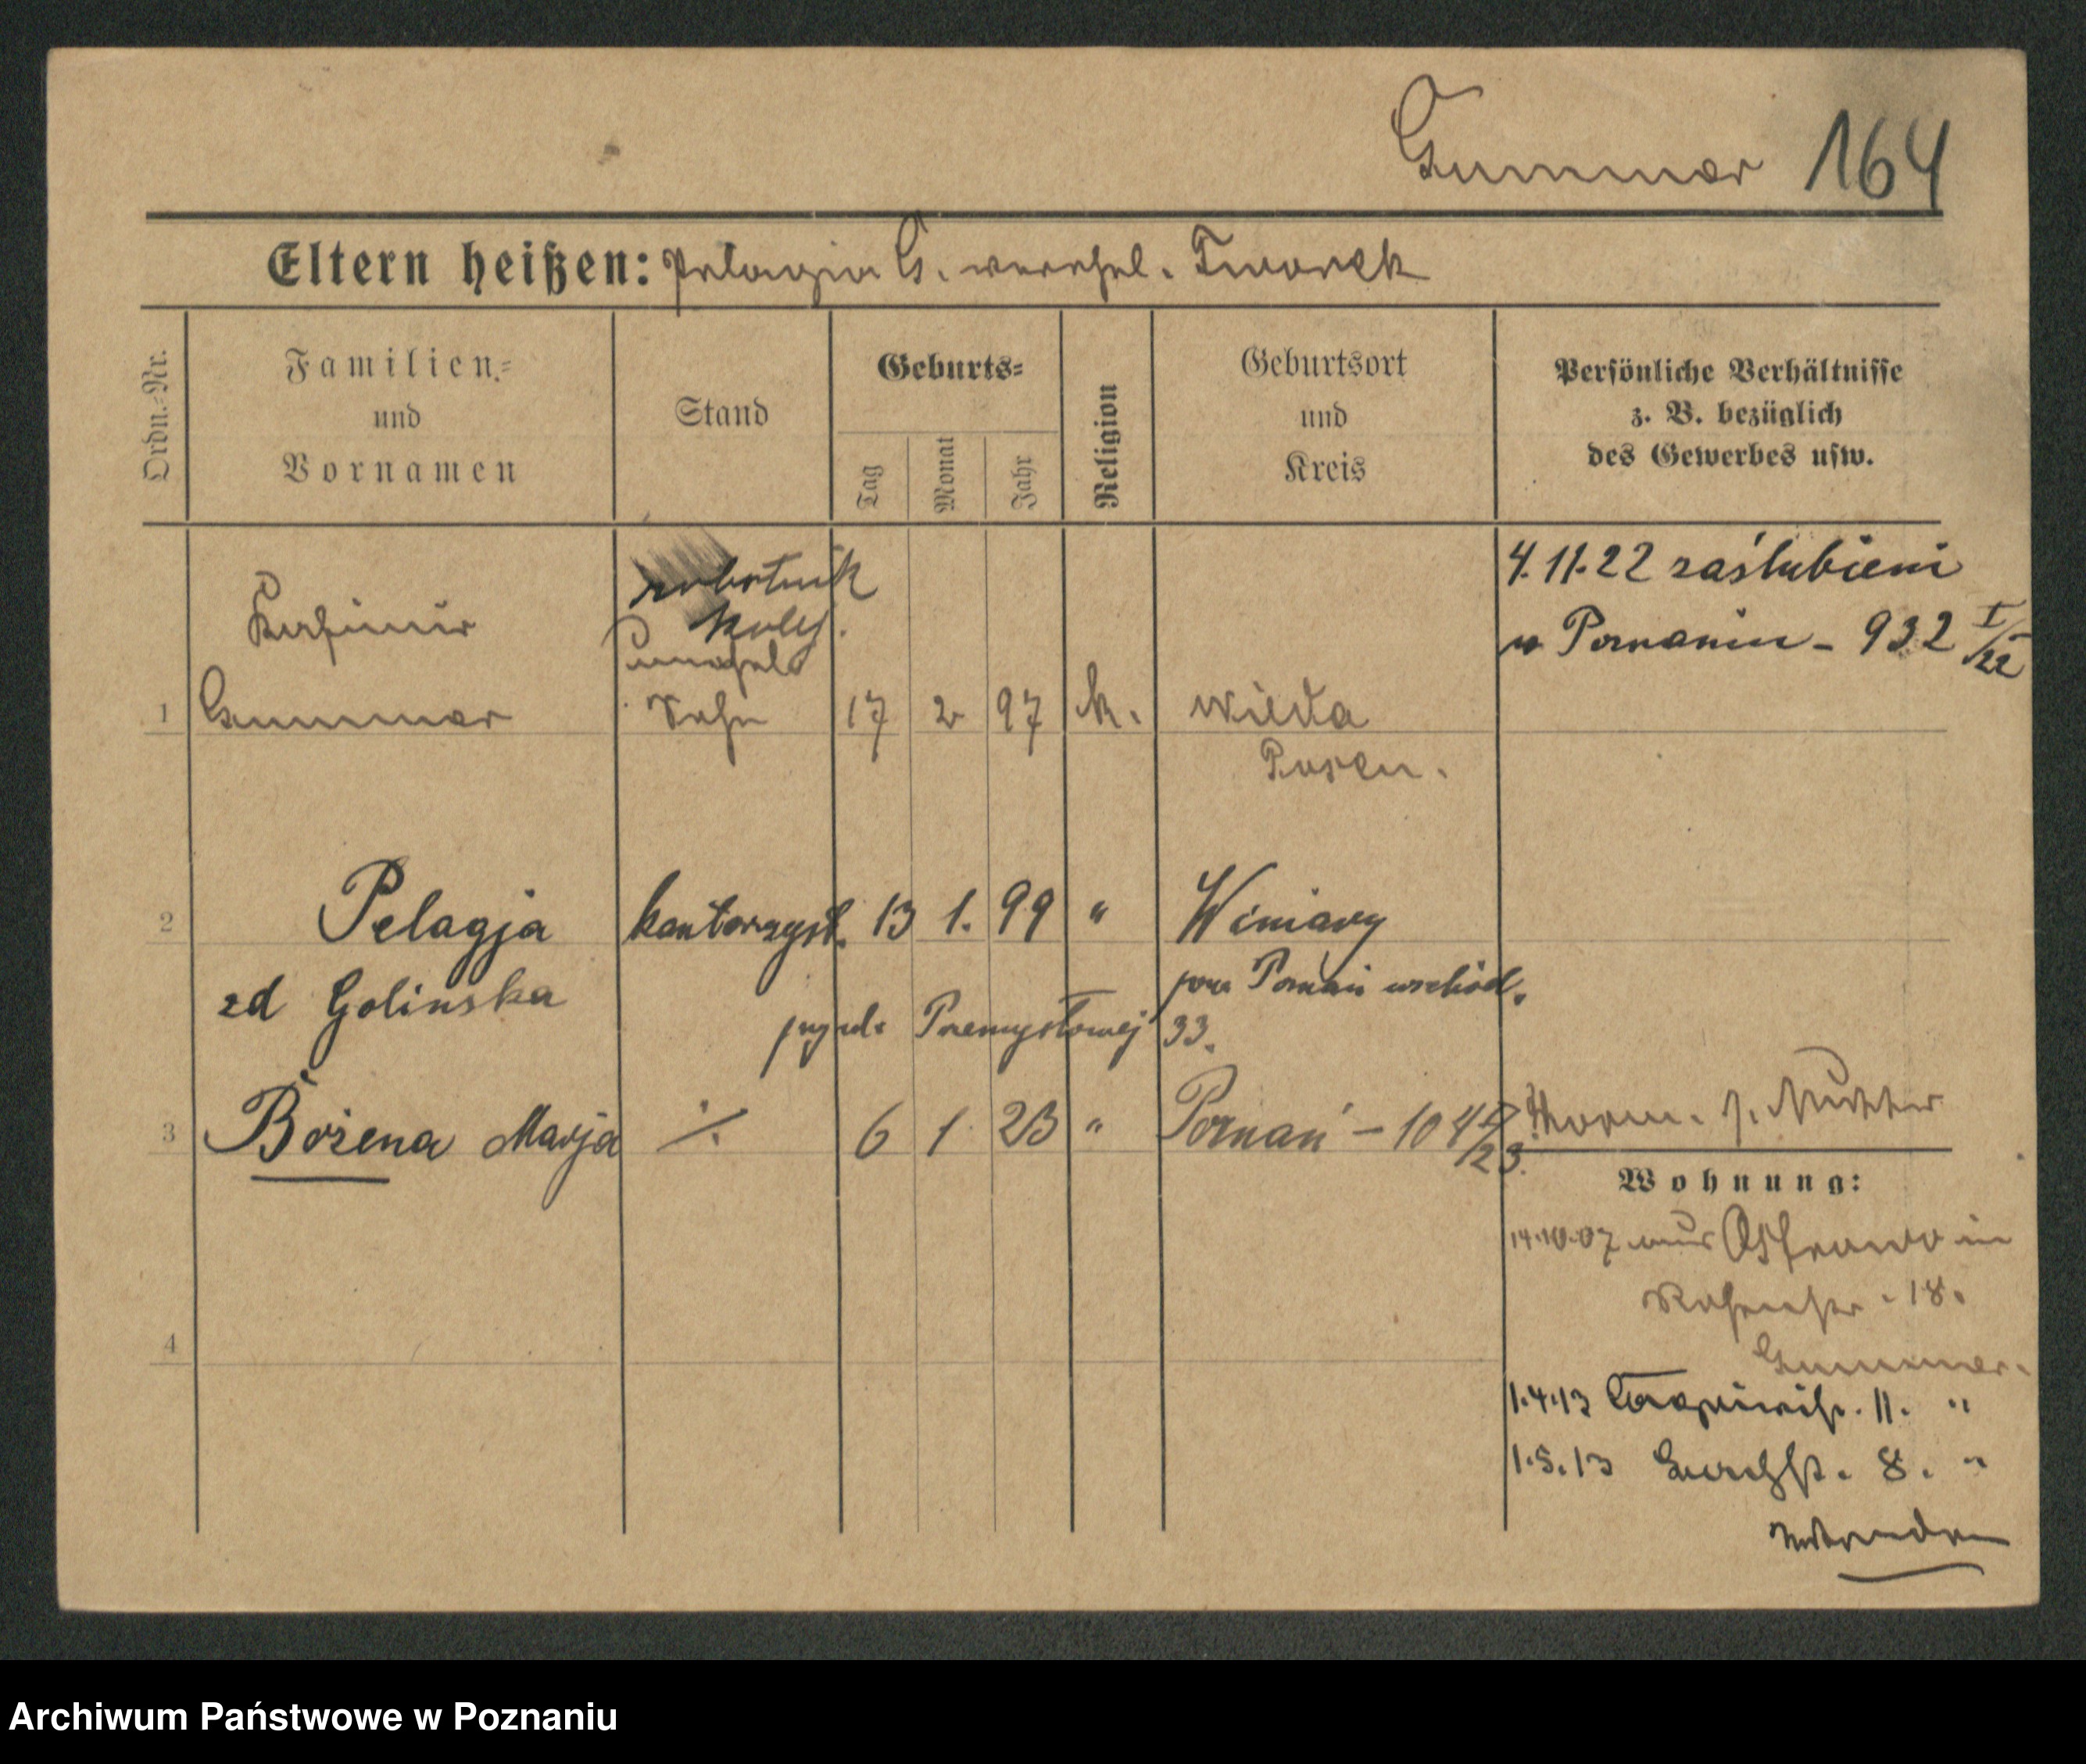 Gummer 164
Eltern heißen: Pelagia G. verehel. Tworek
Ordn.-Nr.
Familien-
und
Vornamen
Stand
Geburts-
Tag
Monat
Jahr
Religion
Geburtsort
und
Kreis
Persönliche Verhältnisse
z. B. bezüglich
des Gewerbes usw.
4.11.22 zaślubieni
w Poznaniu - 932 I/22
robotnik
kolej.
Kasimir
unehel.
1 Gummer Sohn 17 2 97 k. Wilda
Posen.
2 Pelagja kantorzyst. 13 1. 99 " Winiary
zd Golinska pow Poznań wschód.
przy ul. Przemysłowej 33.
3 Bożena Marja ·/. 6 1 23 " Poznań - 104 I/23.
Vorm. s. Mutter
Wohnung:
14.10.07 aus Ostrowo in
18.
Gummer.
4
1.4.13 11. "
1.5.13 8. "